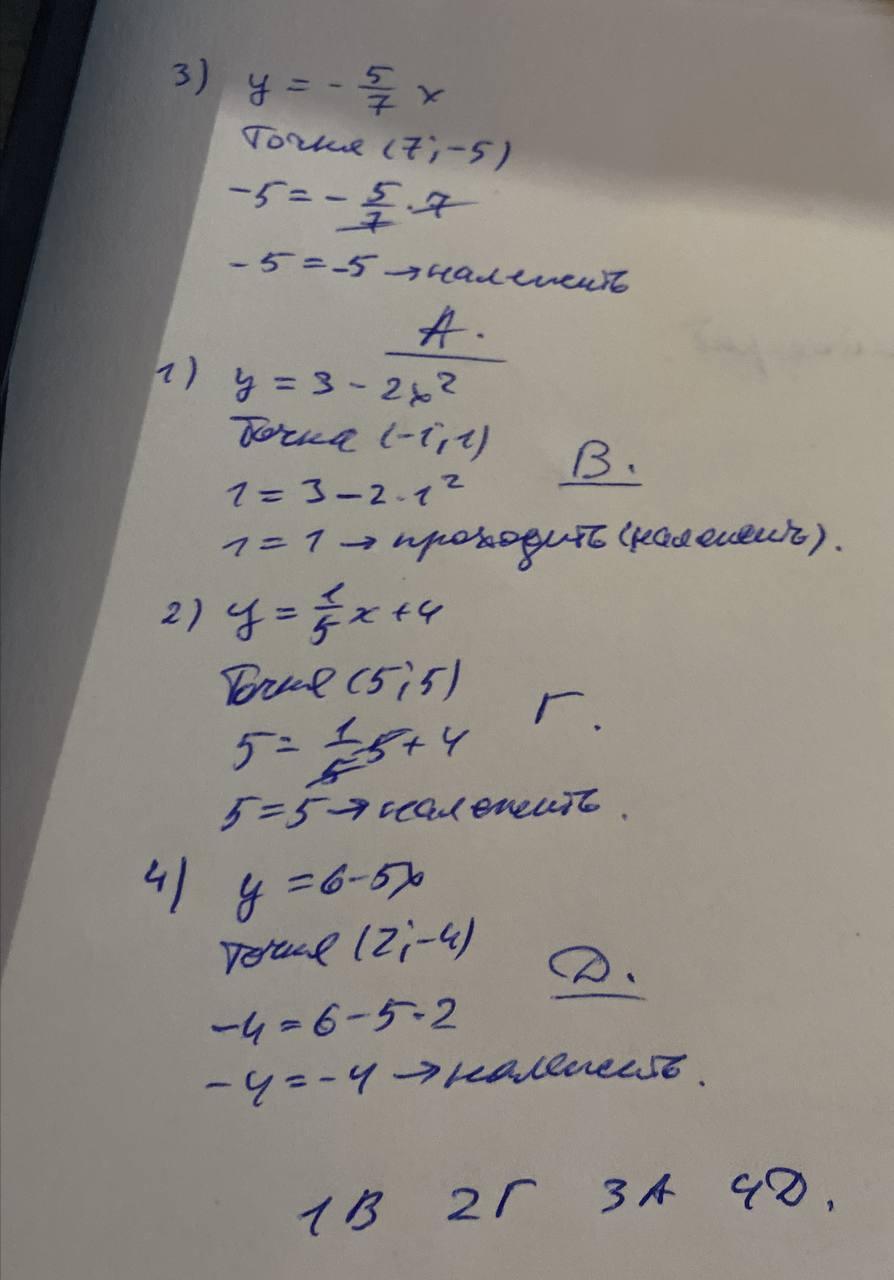 3) y = - 5/7 x
Точка (7; -5)
-5 = - 5/7 · 7
-5 = -5 → належить
А.
1) y = 3 - 2x²
Точка (-1; 1)
В.
1 = 3 - 2 · 1²
1 = 1 → проходить (належить).
2) y = 1/5 x + 4
Точка (5; 5)
Г.
5 = 1/5 · 5 + 4
5 = 5 → належить.
4) y = 6 - 5x
Точка (2; -4)
Д.
-4 = 6 - 5 · 2
-4 = -4 → належить.
1В 2Г 3А 4Д.